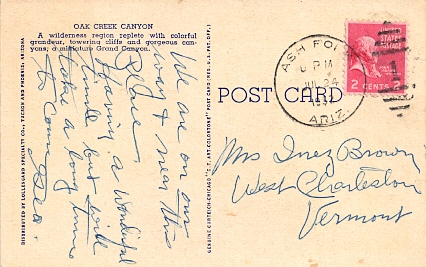 OAK CREEK CANYON
A wilderness region replete with colorful
grandeur, towering cliffs and gorgeous can-
yons; a miniature Grand Canyon.
DISTRIBUTED BY LOLLESGARD SPECIALTY CO., TUCSON AND PHOENIX, ARIZONA
We are on our
way & near this
place.
Having a wonderful
time but will
take a long time
to come
Geo.
GENUINE CURTEICH-CHICAGO "C.T. ART-COLORTONE" POST CARD (REG. U.S. PAT. OFF.)
POST CARD
ASH FORK
P M
JUL 24
ARIZ.
2 CENTS 2
Mrs Inez Brown
West Charleston
Vermont